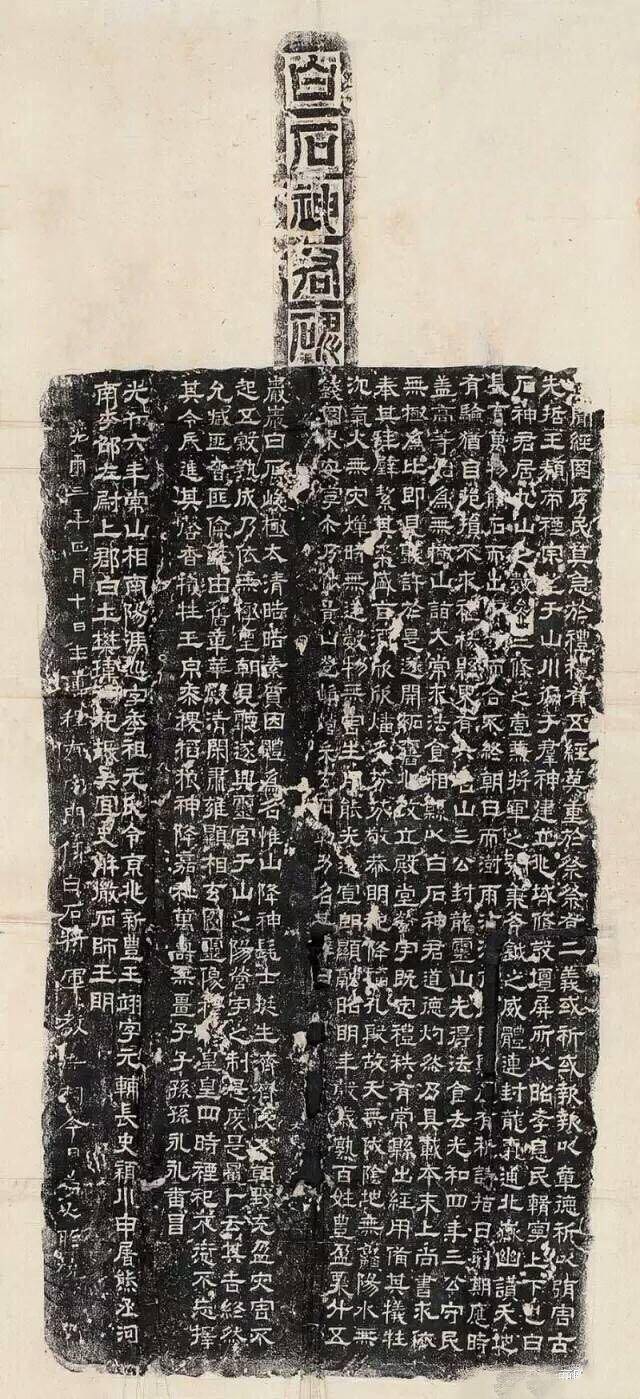 白石神君碑
蓋聞經國序民莫急於禮禮有五經莫重於祭祭有二義或祈或報報以章德祈以弭害古
先哲王類帝禋宗望于山川徧于群神建立兆域修設壇屏所以昭孝息民輯寧上下也白
石神君居九山之數參三條之壹兼將軍之號秉斧鉞之威體連封龍氣通北嶽幽讚天地
長育萬物觸石而出膚寸而合不終朝日而澍雨沾洽前後國縣屢有祈請指日刻期應時
有驗猶自挹損不求禮秩縣界有六名山三公封龍靈山先得法食去光和四年三公守民
蓋高等始為無極山詣大常求法食相縣以白石神君道德灼然乃具載本末上尚書求依
無極為比即見聽許於是遂開拓舊兆改立殿堂營宇既定禮秩有常縣出經用備其犧牲
奉其珪璧絜其粢盛旨酒欣欣燔炙芬芬敬恭明祀降福孔殷故天無伏陰地無鱻陽水無
沉氣火無灾燀時無逆數物無害生用能光遠宣朗顯融昭明年穀歲熟百姓豐盈粟升五
錢國界安寧爾乃陟景山登崢嶸采玄石勒功名其辭曰
巖巖白石峻極太清皓皓素質因體為名惟山降神髦士挺生濟濟俊乂朝野充盈灾害不
起五穀熟成乃依無極聖朝見聽遂興靈宮于山之陽營宇之制是度是量卜云其吉終然
允臧匪奢匪儉率由舊章華殿清閑肅雍顯相玄圖靈像穆穆皇皇四時禋祀不愆不忘擇
其令辰進其馨香犧牲玉帛黍稷稻粮神降嘉祉萬壽無疆子子孫孫永永番昌
光和六年常山相南陽馮巡字季祖元氏令京兆新豐王翊字元輔長史潁川申屠熊丞河
南李邵左尉上郡白土樊瑋祠祀掾吳宜史解微石師王明
元璽三年四月十日主簿程疵家門傳白石將軍教吾祠今日為火所燒